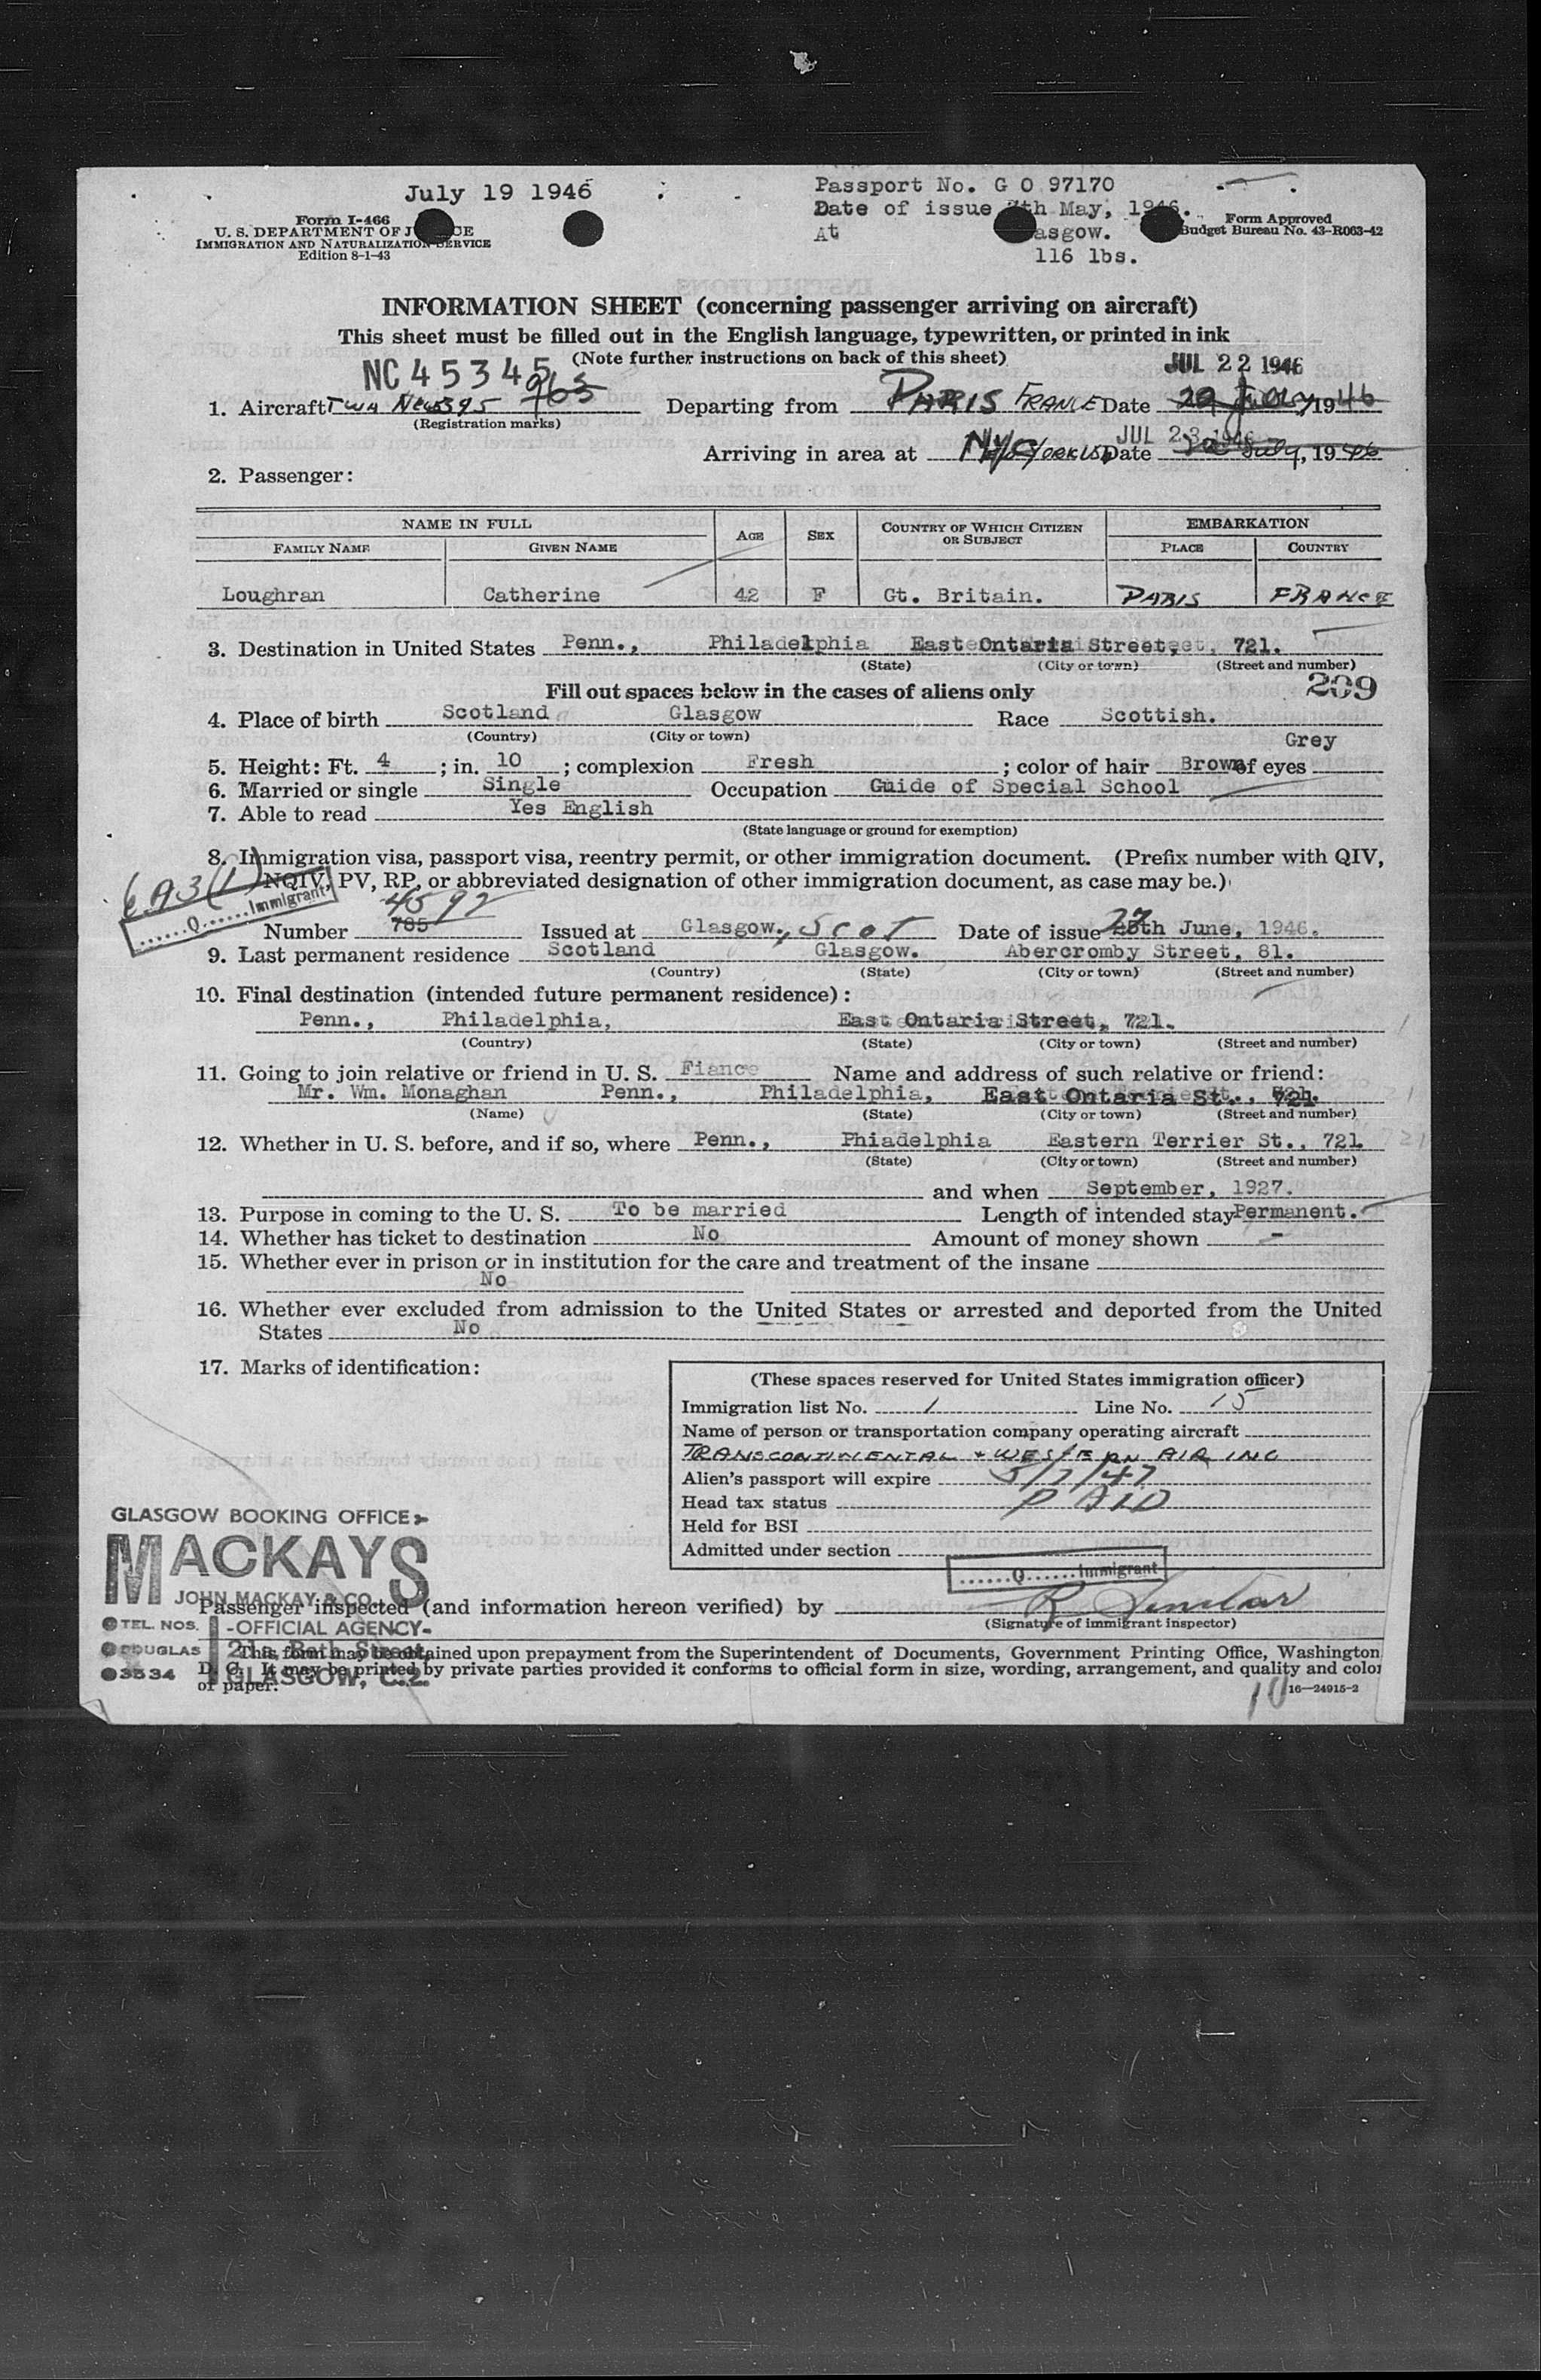 July 19 1946
Passport No. G O 97170
Date of issue 7th May, 1946.
At Glasgow.
116 lbs.
Form I-466
U. S. DEPARTMENT OF JUSTICE
IMMIGRATION AND NATURALIZATION SERVICE
Edition 8-1-43
Form Approved
Budget Bureau No. 43-R063-42
INFORMATION SHEET (concerning passenger arriving on aircraft)
This sheet must be filled out in the English language, typewritten, or printed in ink
(Note further instructions on back of this sheet)
JUL 22 1946
NC 45345
963
1. Aircraft TWA Departing from PARIS FRANCE Date 20 July, 1946
(Registration marks)
JUL 23 1946
Arriving in area at NYC Date July, 1946
2. Passenger:
NAME IN FULL AGE SEX COUNTRY OF WHICH CITIZEN OR SUBJECT EMBARKATION
FAMILY NAME GIVEN NAME PLACE COUNTRY
Loughran Catherine 42 F Gt. Britain. PARIS FRANCE
3. Destination in United States Penn., Philadelphia East Ontaria Street, 721.
(State) (City or town) (Street and number)
Fill out spaces below in the cases of aliens only 209
4. Place of birth Scotland Glasgow Race Scottish.
(Country) (City or town)
Grey
5. Height: Ft. 4 ; in. 10 ; complexion Fresh ; color of hair Brown of eyes
6. Married or single Single Occupation Guide of Special School
7. Able to read Yes English
(State language or ground for exemption)
8. Immigration visa, passport visa, reentry permit, or other immigration document. (Prefix number with QIV,
NQIV, PV, RP, or abbreviated designation of other immigration document, as case may be.)
6A3(1)
......Q......Immigrant
4592
Number 785 Issued at Glasgow., Scot Date of issue 27th June, 1946.
9. Last permanent residence Scotland Glasgow. Abercromby Street, 81.
(Country) (State) (City or town) (Street and number)
10. Final destination (intended future permanent residence):
Penn., Philadelphia, East Ontaria Street, 721.
(Country) (State) (City or town) (Street and number)
11. Going to join relative or friend in U. S. Fiance Name and address of such relative or friend:
Mr. Wm. Monaghan Penn., Philadelphia, East Ontaria St., 721.
(Name) (State) (City or town) (Street and number)
12. Whether in U. S. before, and if so, where Penn., Phiadelphia Eastern Terrier St., 721
(State) (City or town) (Street and number)
and when September, 1927.
13. Purpose in coming to the U. S. To be married Length of intended stay Permanent.
14. Whether has ticket to destination No Amount of money shown -
15. Whether ever in prison or in institution for the care and treatment of the insane
No
16. Whether ever excluded from admission to the United States or arrested and deported from the United
States No
17. Marks of identification:
(These spaces reserved for United States immigration officer)
Immigration list No. 1 Line No. 15
Name of person or transportation company operating aircraft
TRANSCONTINENTAL + WESTERN AIR INC
Alien's passport will expire 5/7/47
Head tax status PAID
Held for BSI
Admitted under section
......Q......Immigrant
GLASGOW BOOKING OFFICE
MACKAYS
JOHN MACKAY & CO.
TEL. NOS. -OFFICIAL AGENCY-
DOUGLAS 21a, Bath Street
3534 GLASGOW, C.2.
Passenger inspected (and information hereon verified) by
(Signature of immigrant inspector)
This form may be obtained upon prepayment from the Superintendent of Documents, Government Printing Office, Washington
D. C. It may be printed by private parties provided it conforms to official form in size, wording, arrangement, and quality and color
of paper.
10 16—24915-2